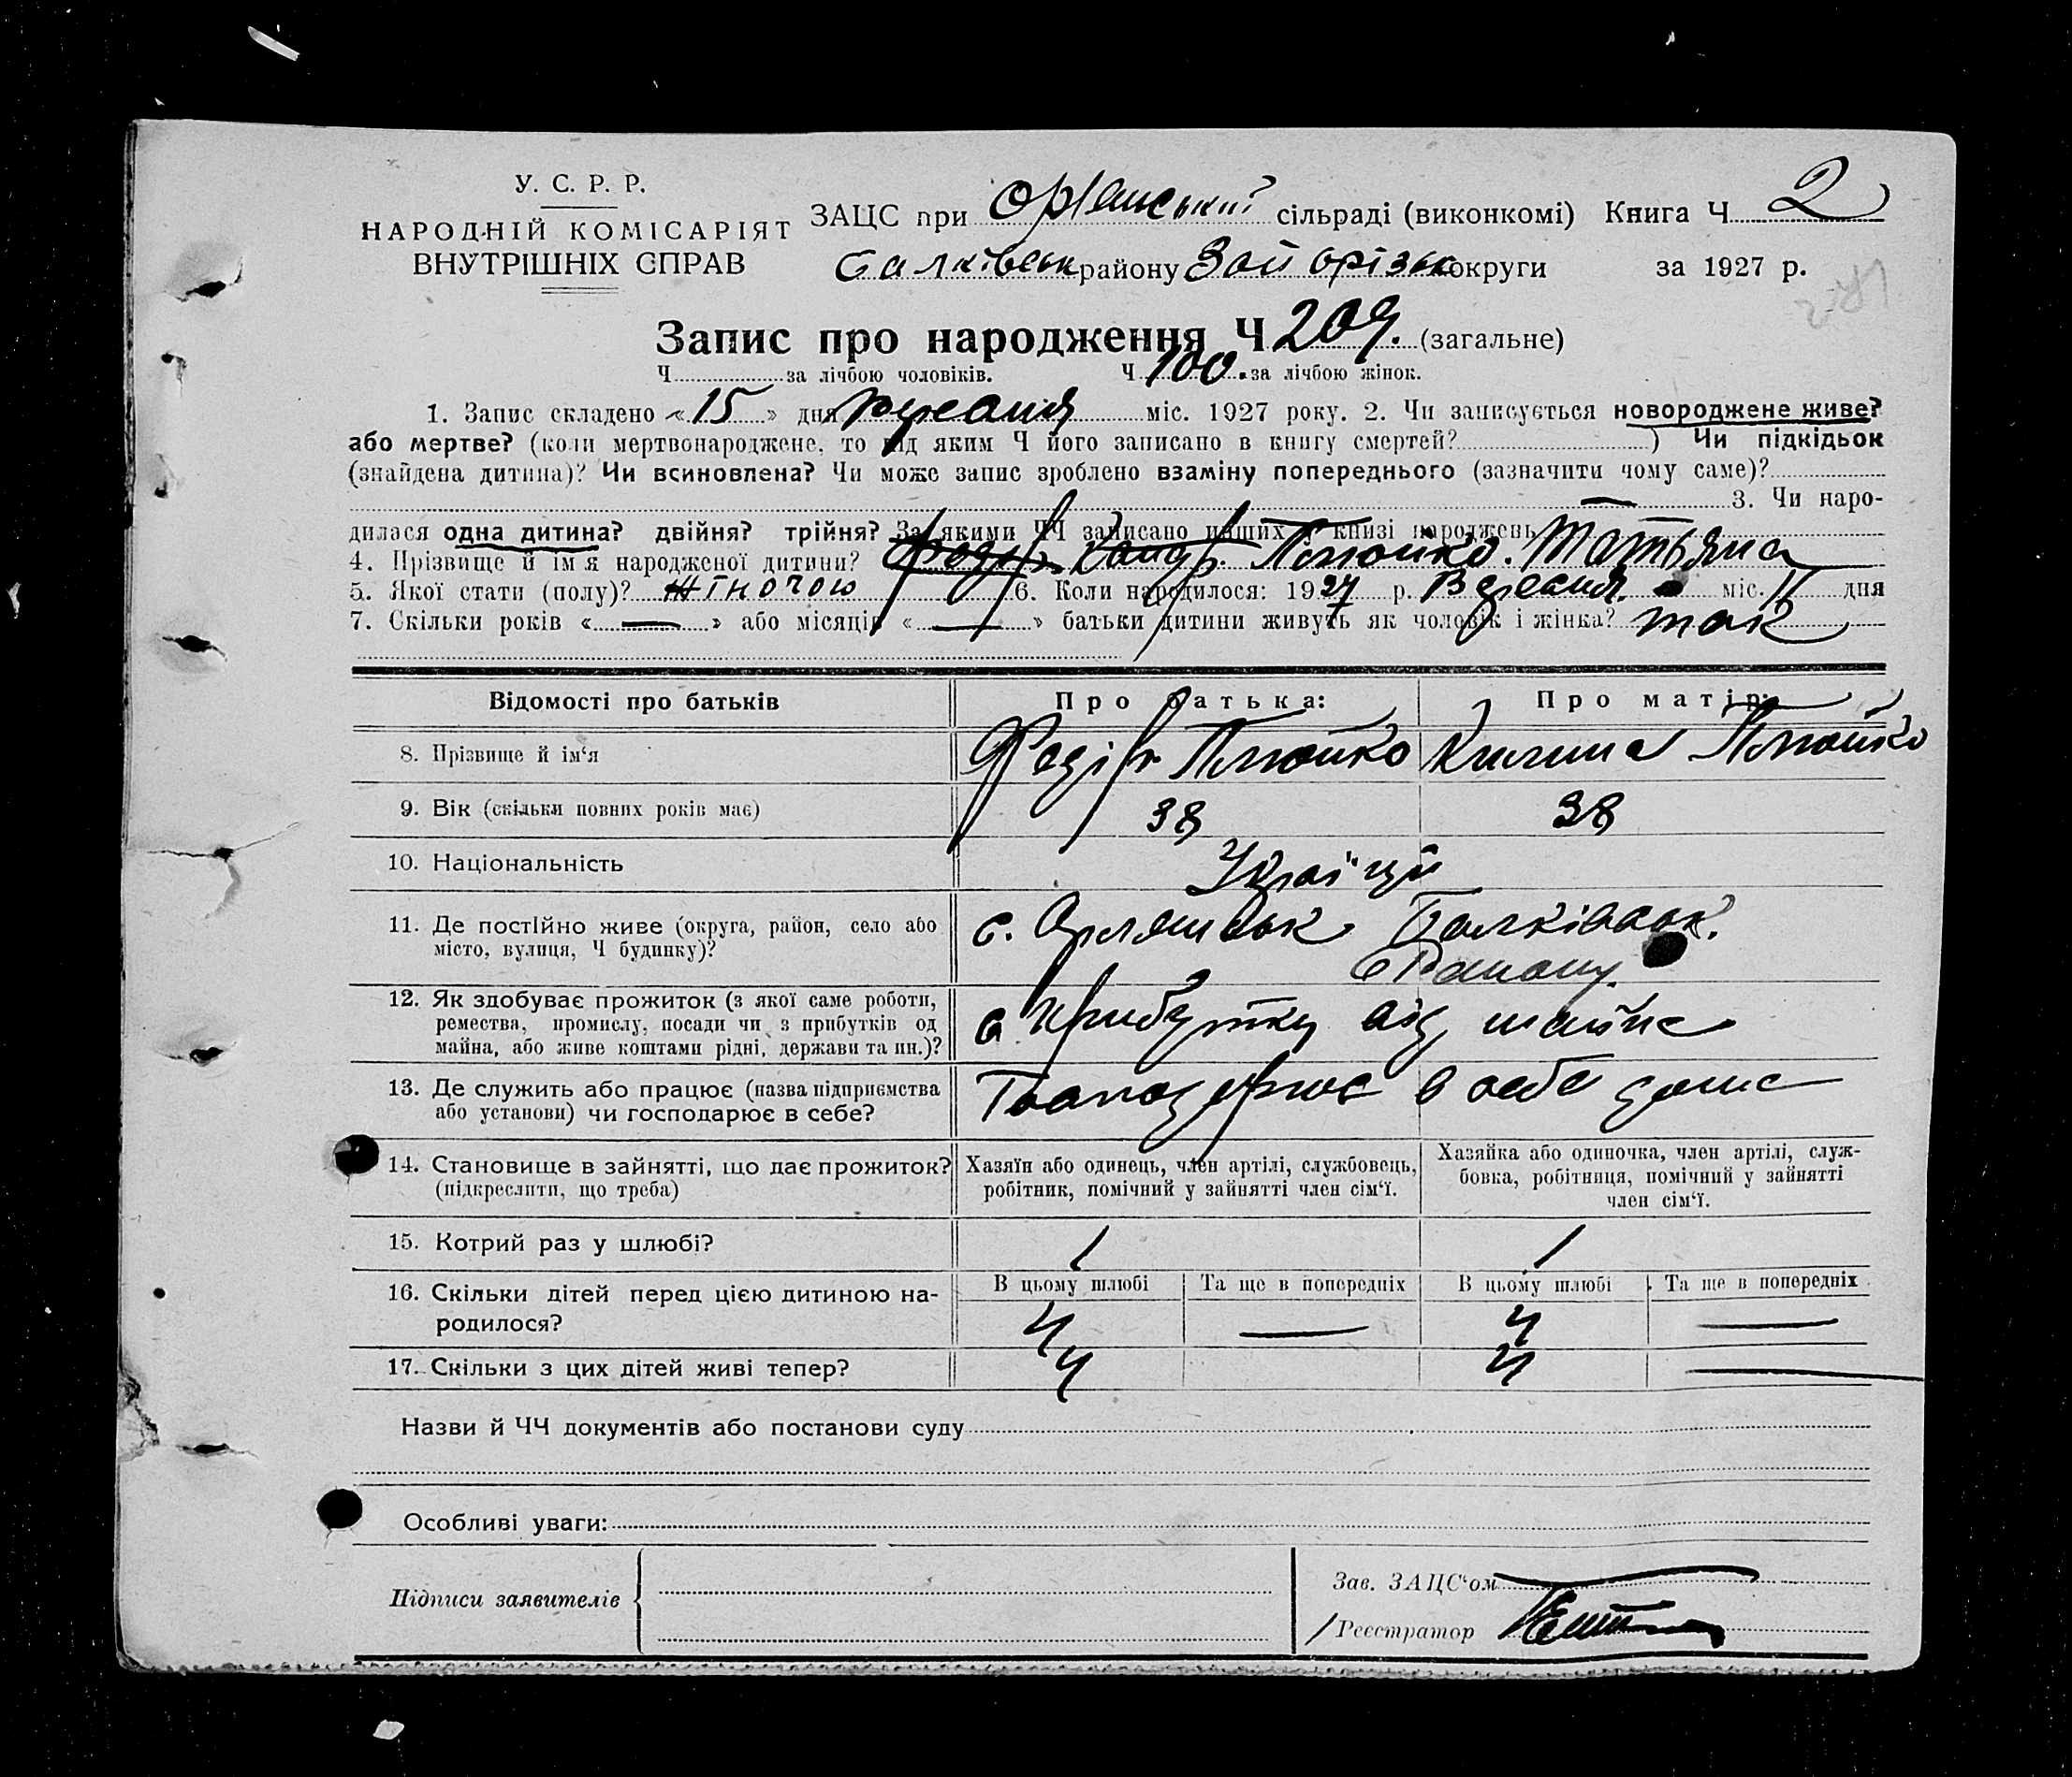 У. С. Р. Р.
НАРОДНІЙ КОМІСАРІЯТ
ВНУТРІШНІХ СПРАВ
ЗАЦС при сільраді (виконкомі) Книга Ч 2
району округи за 1927 р.
Запис про народження Ч 209. (загальне)
Ч за лічбою чоловіків. Ч 100. за лічбою жінок.
1. Запис складено «15» дня Вересня міс. 1927 року. 2. Чи записується новороджене живе?
або мертве? (коли мертвонароджене, то під яким Ч його записано в книгу смертей? ) Чи підкідьок
(знайдена дитина)? Чи всиновлена? Чи може запис зроблено взаміну попереднього (зазначити чому саме)?
— 3. Чи наро-
дилася одна дитина? двійня? трійня? За якими ЧЧ записано инших у книзі народжень
4. Прізвище й ім'я народженої дитини? Татьяна
5. Якої стати (полу)? Жіночою 6. Коли народилося: 1927 р. Вересня. міс. 11 дня
7. Скільки років «—» або місяців «—» батьки дитини живуть як чоловік і жінка? так
Відомості про батьків Про батька: Про матір:
8. Прізвище й ім'я Федір
9. Вік (скільки повних років має) 38 38
10. Національність Украї'нці
11. Де постійно живе (округа, район, село або
місто, вулиця, Ч будинку)? с.
12. Як здобуває прожиток (з якої саме роботи,
ремества, промислу, посади чи з прибутків од
майна, або живе коштами рідні, держави та ин.)? с прибутку від майна
13. Де служить або працює (назва підприємства
або установи) чи господарює в себе? в себе дома
14. Становище в зайнятті, що дає прожиток?
(підкреслити, що треба)
Хазяїн або одинець, член артілі, службовець,
робітник, помічний у зайнятті член сім'ї.
Хазяйка або одиночка, член артілі, служ-
бовка, робітниця, помічний у зайнятті
член сім'ї.
15. Котрий раз у шлюбі? 1 1
В цьому шлюбі Та ще в попередніх В цьому шлюбі Та ще в попередніх
16. Скільки дітей перед цією дитиною на-
родилося? 4 — 4 —
17. Скільки з цих дітей живі тепер? 4 4 —
Назви й ЧЧ документів або постанови суду
Особливі уваги:
Підписи заявителів
Зав. ЗАЦС'ом
Реєстратор